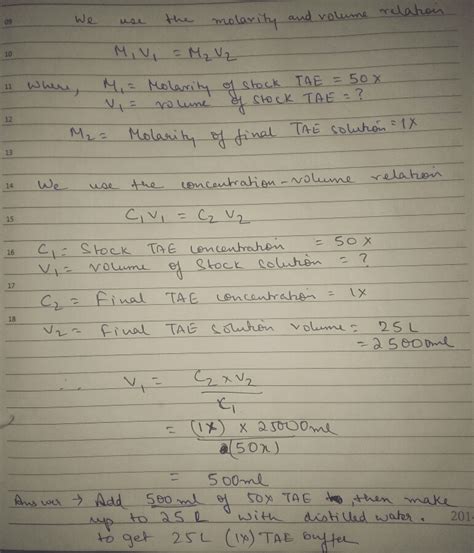 09 We use the molarity and volume relation
10 M1V1 = M2V2
11 Where, M1 = Molarity of stock TAE = 50X
V1 = volume of stock TAE = ?
12
M2 = Molarity of final TAE solution = 1X
13
14 We use the concentration-volume relation
15 C1V1 = C2V2
16 C1 = Stock TAE concentration = 50X
V1 = volume of stock solution = ?
17
C2 = Final TAE concentration = 1X
18
V2 = Final TAE solution volume = 25L
= 25000ml
∴ V1 = C2 x V2
C1
= (1X) x 25000ml
(50X)
= 500ml
Answer → Add 500ml of 50X TAE, then make
up to 25L with distilled water. 201
to get 25L (1X) TAE buffer